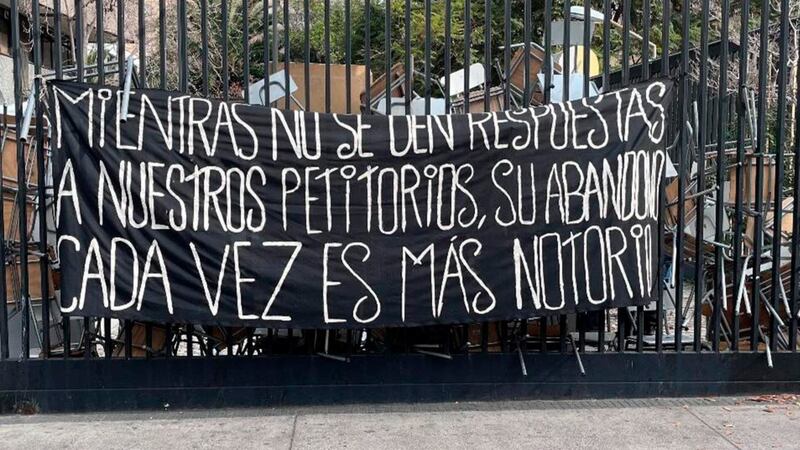 MIENTRAS NO SE DEN RESPUESTAS
A NUESTROS PETITORIOS, SU ABANDONO
CADA VEZ ES MÁS NOTORIO